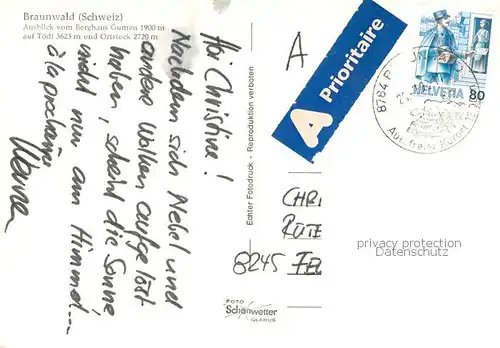 Braunwald (Schweiz)
Ausblick vom Berghaus Gumen 1900 m
auf Tödi 3623 m und Ortstock 2720 m
Hoi Christine!
Nachdem sich Nebel und
andere Wolken aufgelöst
haben, scheint die Sonne
nicht nur am Himmel....
à la prochaine
Echter Fotodruck - Reproduktion verboten
FOTO
Schönwetter
GLARUS
A
A Prioritaire
HELVETIA 80
8784
Autofreier Kurort
CHRI
RÜTE
8245 FE
privacy protection
Datenschutz